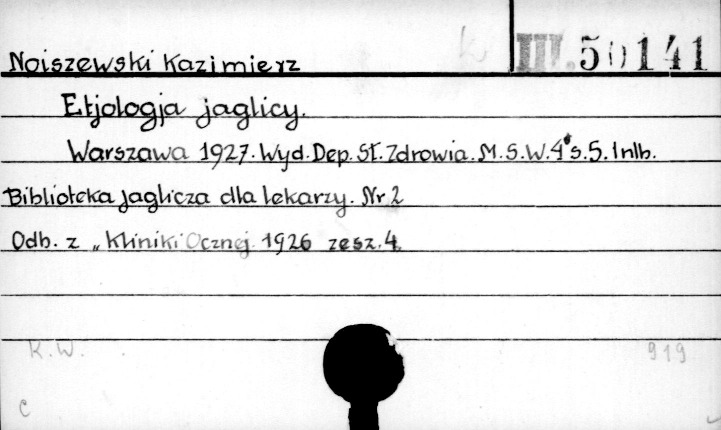 III. 50141
Noiszewski Kazimierz
Etjologja jaglicy.
Warszawa 1927. Wyd. Dep. St. Zdrowia. M. S. W. 4° s. 5. 1nlb.
Biblioteka jaglicza dla lekarzy. Nr 2
Odb. z „Kliniki Ocznej" 1926 zesz. 4.
K. W.
919
c